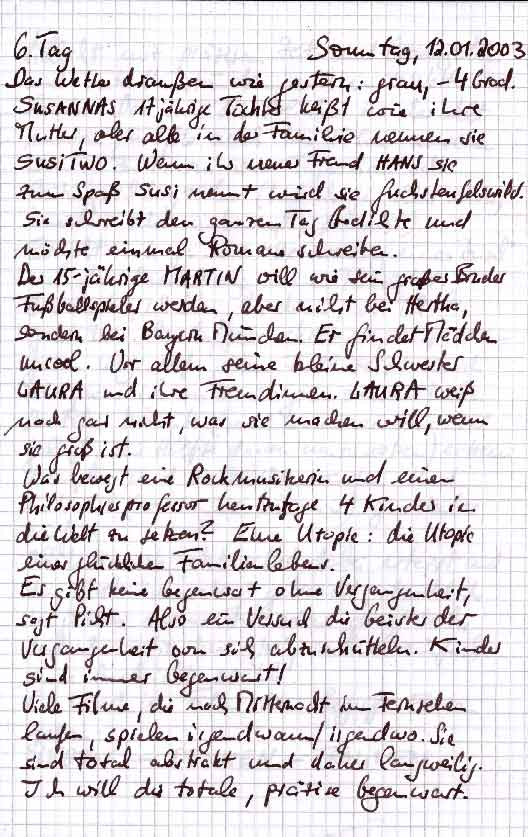 6. Tag Sonntag, 12.01.2003
Das Wetter draußen wie gestern: grau, -4 Grad.
SUSANNAS 17jährige Tochter heißt wie ihre
Mutter, aber alle in der Familie nennen sie
SUSITWO. Wenn ihr neuer Freund HANS sie
zum Spaß Susi nennt wird sie fuchsteufelswild.
Sie schreibt den ganzen Tag Gedichte und
möchte einmal Romane schreiben.
Der 15-jährige MARTIN will wie sein großer Bruder
Fußballspieler werden, aber nicht bei Hertha,
sondern bei Bayern München. Er findet Mädchen
uncool. Vor allem seine kleine Schwester
LAURA und ihre Freundinnen. LAURA weiß
noch gar nicht, was sie machen will, wenn
sie groß ist.
Was bewegt eine Rockmusikerin und einen
Philosophieprofessor heutzutage 4 Kinder in
die Welt zu setzen? Eine Utopie: die Utopie
eines glücklichen Familienlebens.
Es gibt keine Gegenwart ohne Vergangenheit,
sagt Picht. Also ein Versuch die Geister der
Vergangenheit von sich abzuschütteln. Kinder
sind immer Gegenwart!
Viele Filme, die nach Mitternacht im Fernsehen
laufen, spielen irgendwann/irgendwo. Sie
sind total abstrakt und daher langweilig.
Ich will die totale, präzise Gegenwart.